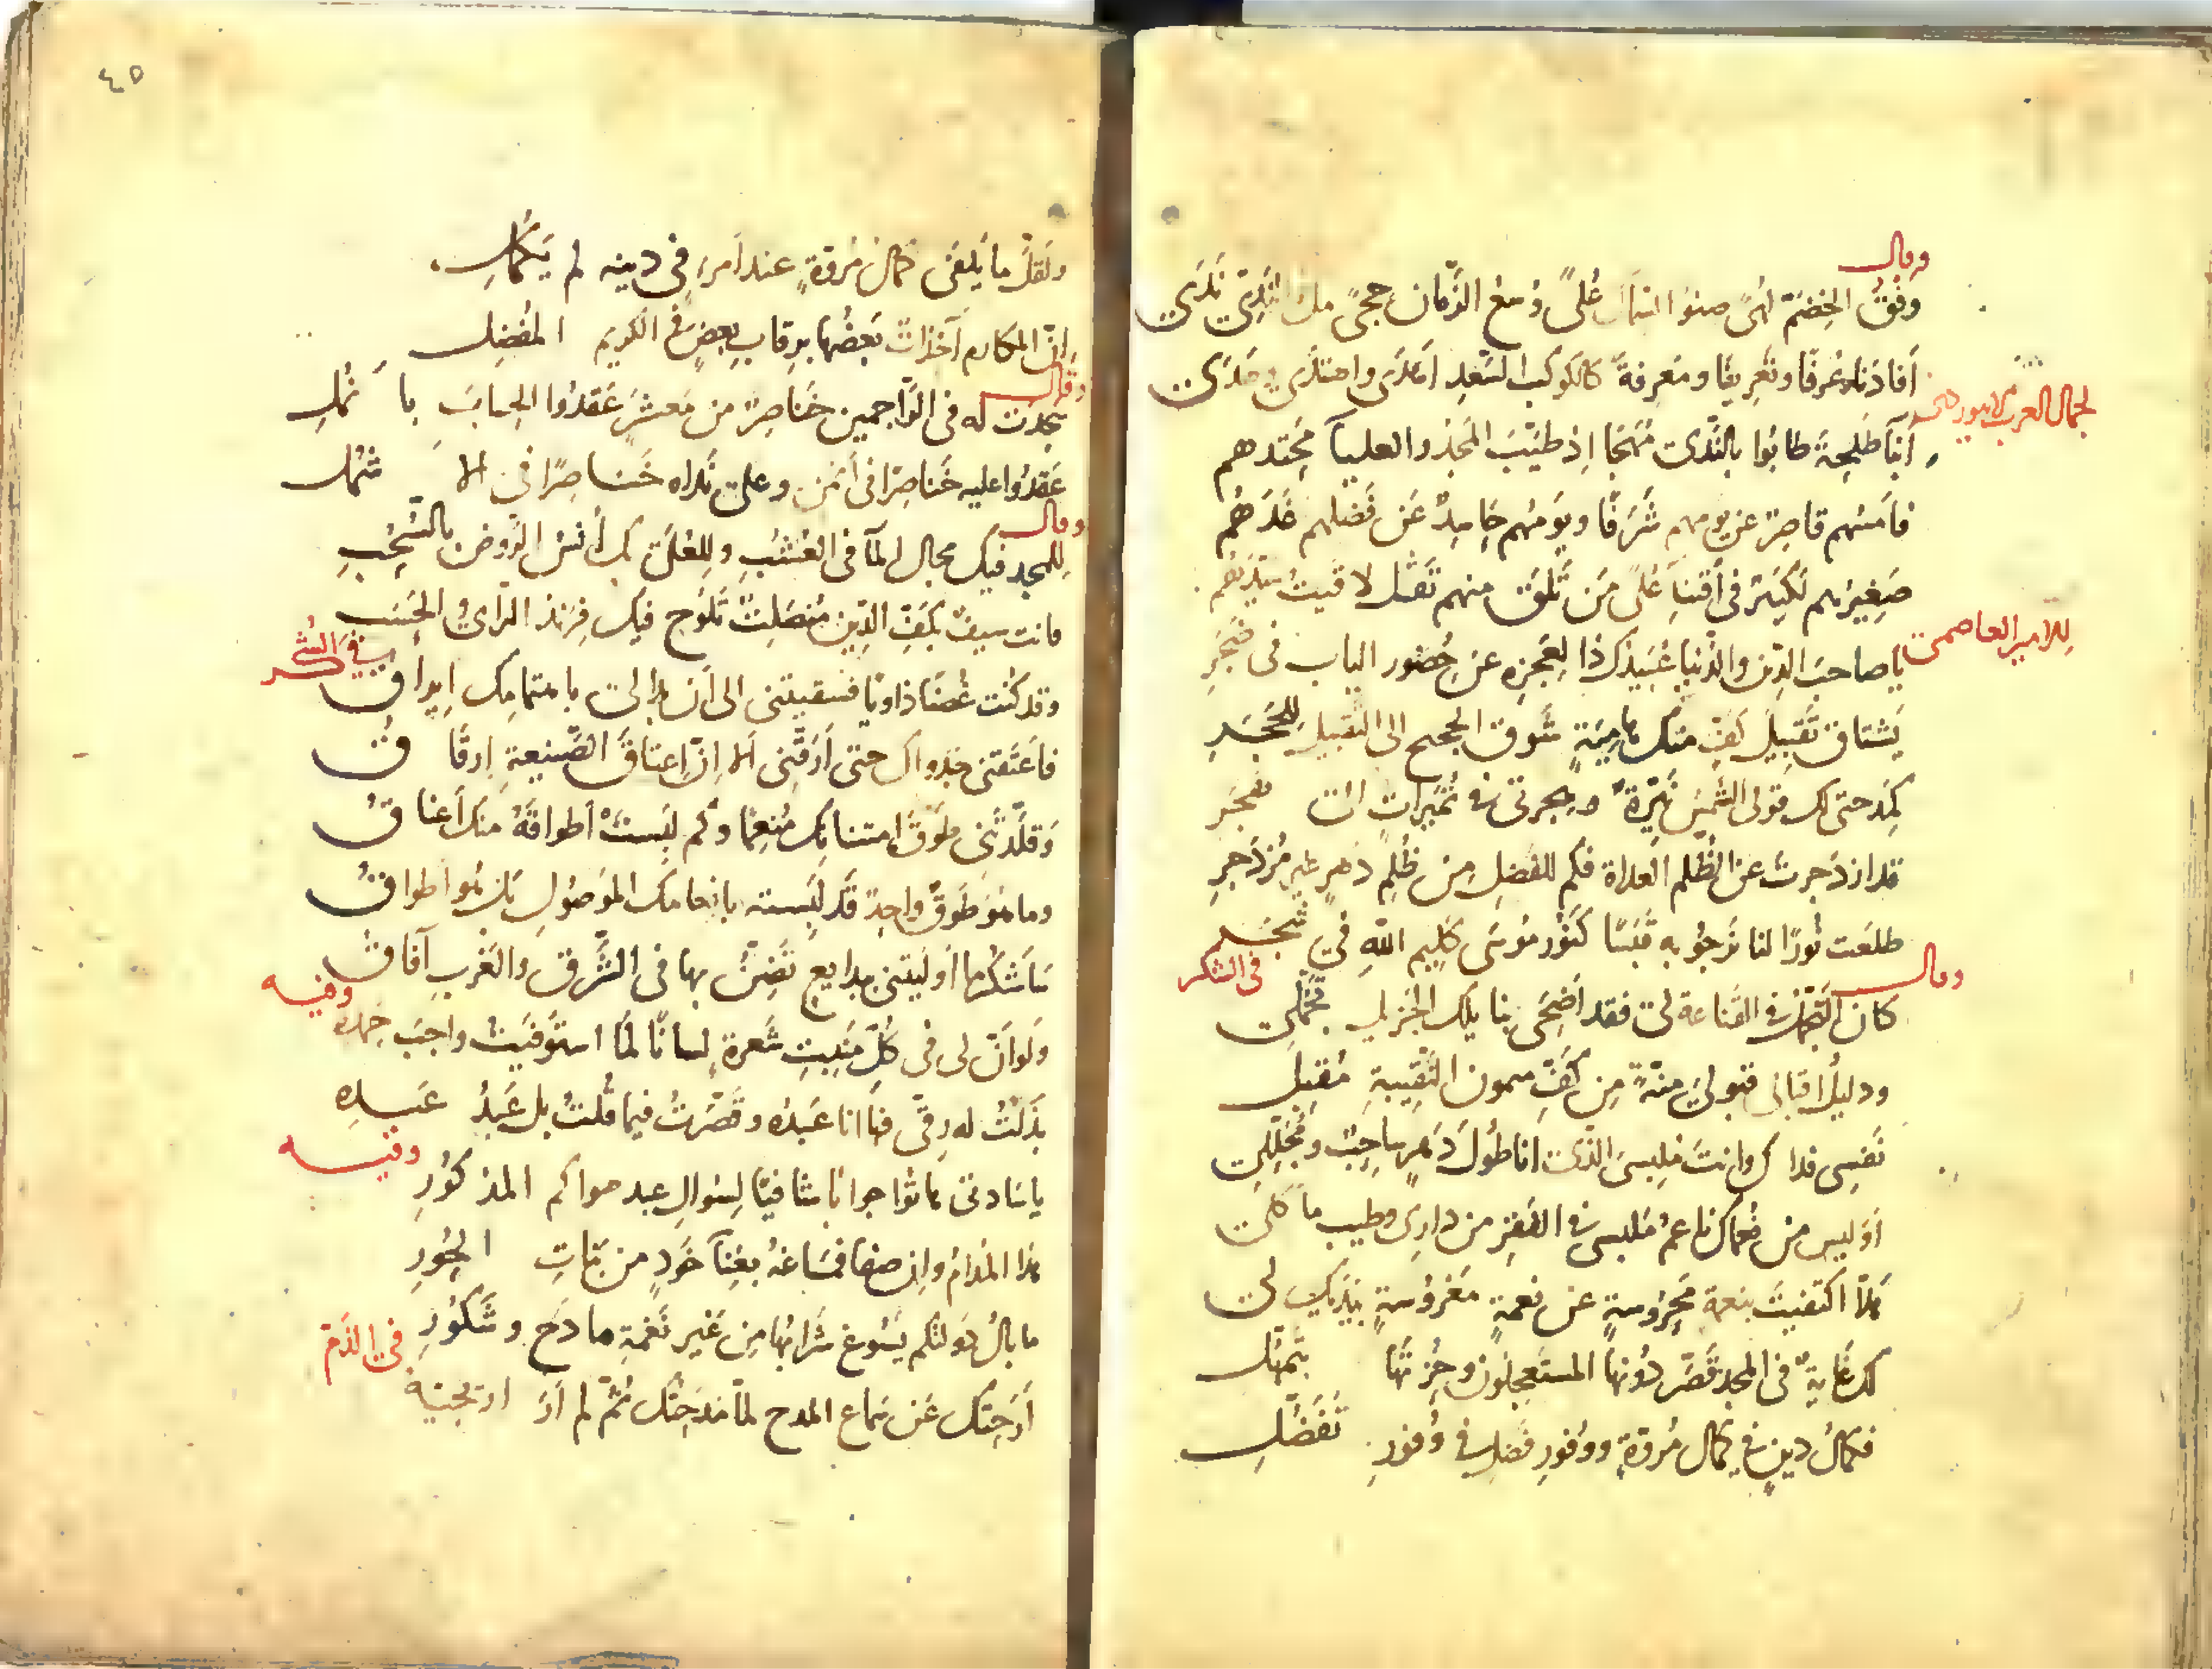 وقال
وفق الخضم نهى صنو السماء علىً وسع الزمان حجىً ملء الندى ندى
أفادناه عُرفًا وتعريفًا ومعرفةً كالكوكب السعد أهدى واحتذى وهدى
لجمال العرب الابيوردى
أبنا طلحة طابوا بالندى مهجا اذ طيّب المجد والعليا محتدهم
فامسهم قاصر عن يومهم شرفًا ويومهم حامد عن فضلهم غدهم
صغيرهم لكبير فى اقتناء علىً من تلق منهم تقل لاقيت سيدهم
للامير العاصمى
يا صاحب الدين والدنيا عُبيدك ذا لعجزه عن حضور الباب فى ضجر
يشتاق تقبيل كف منك هامية شوق الحجيج الى التقبيل للحجر
قد ازدجرت عن الظلم العداة فكم للفضل من ظلم دهر غير مزدجر
طلعت نورًا لنا نرجو به قبسًا كنور موسى كليم الله فى شجر
وقال
فى الشكر
كان التجمل فى القناعة لى فقد أضحى بنا يلك الجزيل تجملى
ودليل اقبالى قبولى منةً من كف ميمون النقيبة مقبل
نفسى فداك وانت ملبسى الذى انا طول دهرى ساحب ومجللى
أوليس من نعماك ناعم ملبسى فى الفقر من دارى وطيب ماكلى
هلا اكتفيت بنعمة محروسة عن نعمة مغروسة بيديك لى
لك غاية فى المجد قصر دونها المستعجلون وحزتها بتمهل
فكمال دين فى كمال مروة ووفور فضل فى وفور تفضل
٤٥
ولقلّ ما يلفى كمال مروة عند امرئ فى دينه لم يكمل
إن المكارم آخذات بعضها برقاب بعض فى الكريم المفضل
وقال
سجدت له فى الراجمين خناصر من معشر عقدوا الحساب با نمل
عقدوا عليه خناصرًا فى أمن وعلى نداه خناصرًا فى الا شمل
وقال
للمجد فيك مجال الما فى العشب وللعلى بك أنس الروض بالسحب
فانت سيف بكف الدين منصلت تلوح فيك فرند الراى والحسب
فى الشكر
وقد كنت غصنًا ذاويًا فسقيتنى الى أن بدا لى باهتمامك إيراق
فاعتقتنى جدواك حتى أرقنى الا إن إعتاق الصنيعة إرقا ق
وقلدتنى طوق امتنانك منعمًا وكم لبست أطواقه منك أعنا ق
وما هو طوق واحد قد لبسته بانعامك الموصول بل هو اطواق
سأشكر ما أوليتنى ببدايع تضئ بها فى الشرق والغرب آفاق
وفيه
ولو أن لى فى كل منبت شعرة لسانًا لما استوفيت واجب حمده
بذلت له رقى فها انا عبده وقصرت فيما قلت بل عبد عبده
وفيه
يا سادتى هاتوا جوابا شافيًا لسوال عبد هواكم المذكور
هذا المدام وان صفا فمساغه بغنا خود من بنات الحور
ما بال دولتكم يسوغ شرابها من غير نغمة مادح وشكور
فى الذم
أزحتك عن سماع المدح لما مدحتك ثم لم أر ار يحيّة